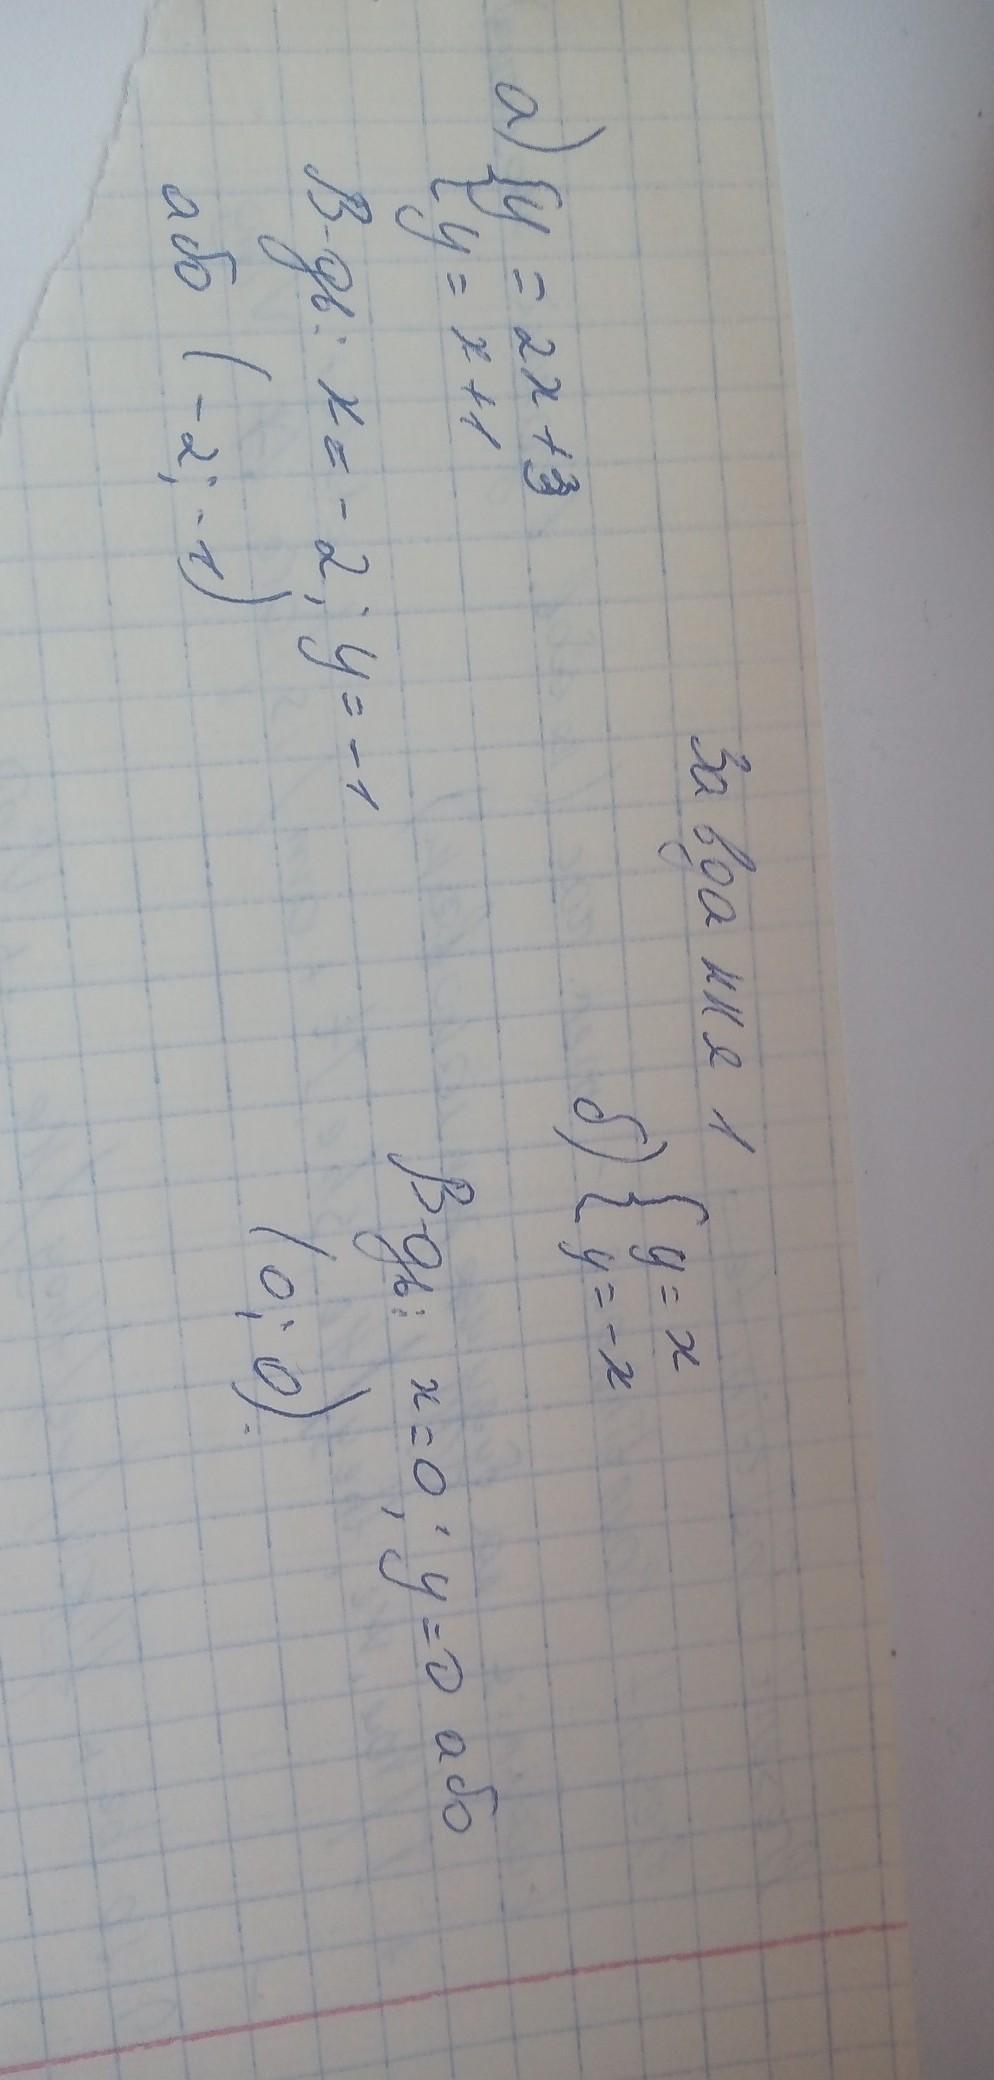 Завдання 1
а) { y = 2x + 3
y = x + 1
В-дь: x = -2; y = -1
або (-2; -1)
б) { y = x
y = -x
В-дь: x = 0; y = 0 або
(0; 0).